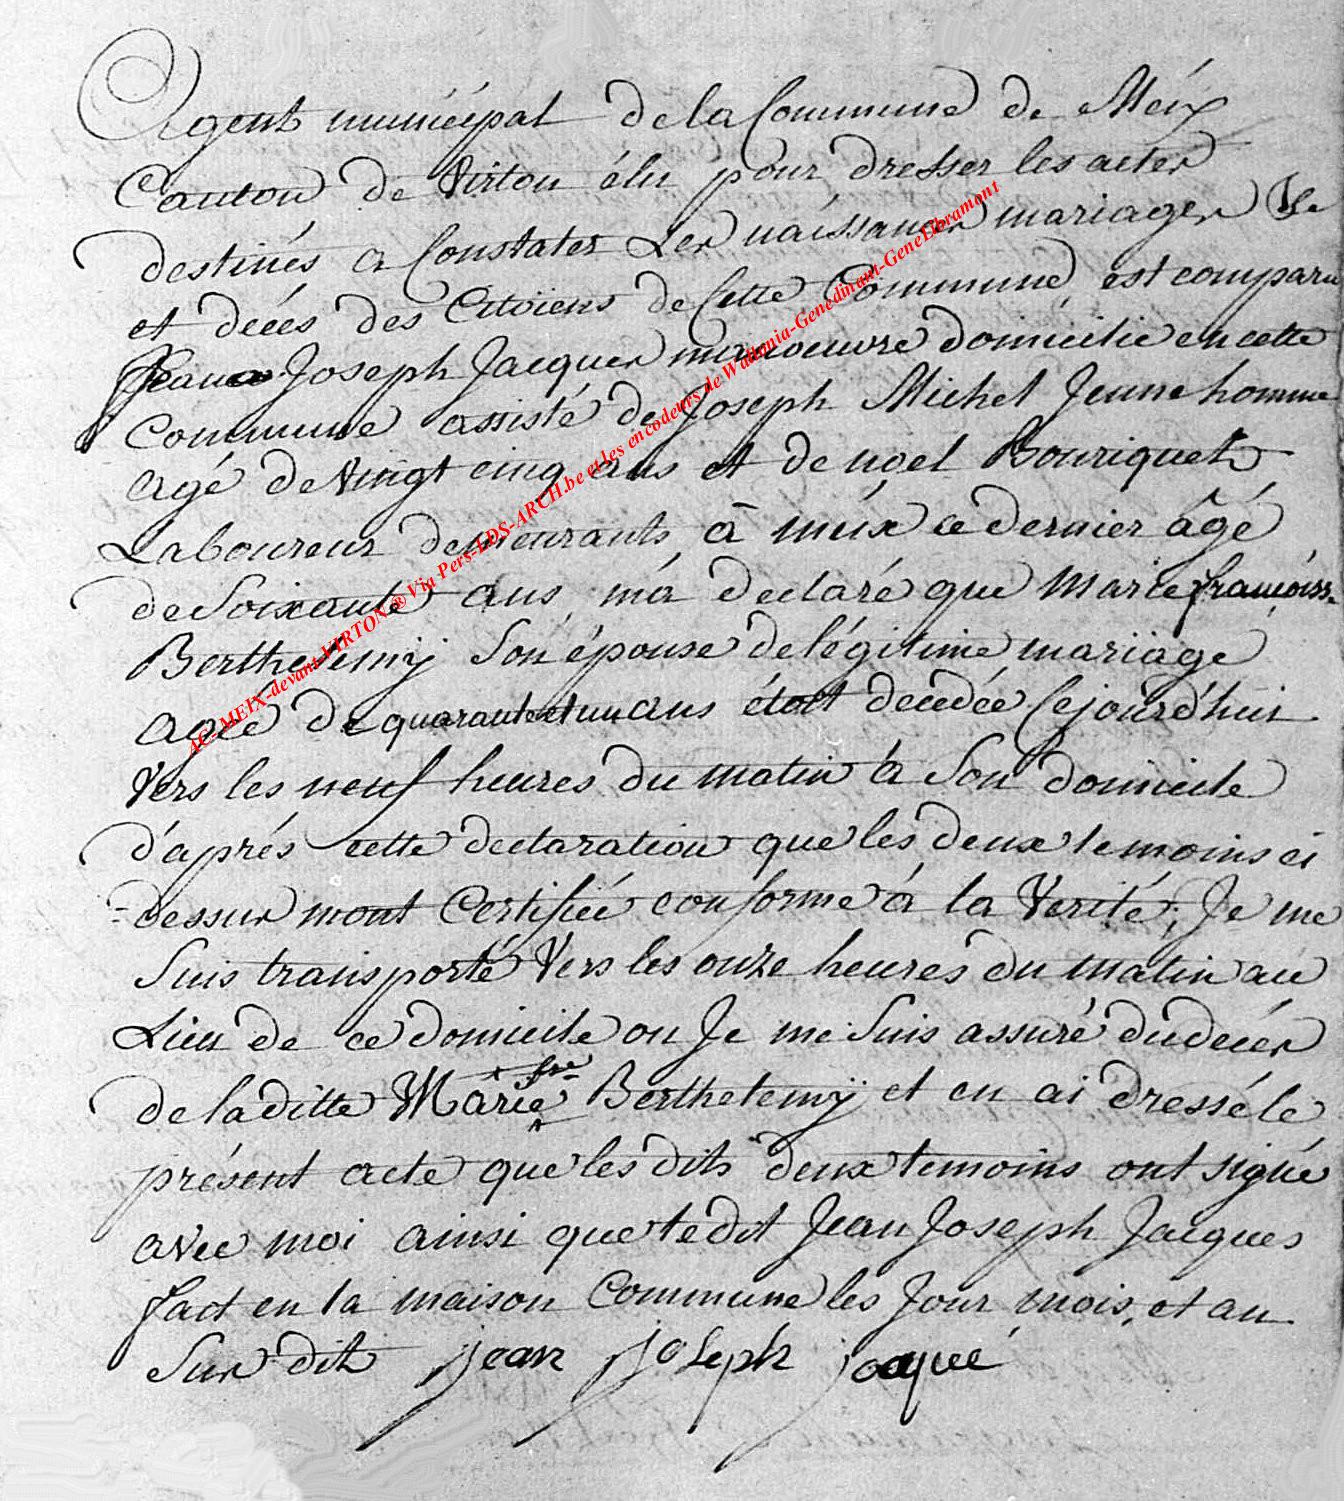 Agent municipal de la Commune de Meix
Canton de Virton élu pour dresser les actes
destinés a Constater Les naissances mariages
et décés des Citoïens de Cette Commune est comparu
Jean Joseph Jacques manoeuvre domicilié en cette
Commune assisté de Joseph Michel Jeune homme
agé de vingt cinq ans et de noel Bouriquet
Laboureur demeurants à méix ce dernier âgé
de Soixante ans m'a declaré que Marie françoise
Berthelemÿ Son épouse de légitime mariage
agée de quarante et un ans étoit decedée Cejourd'hui
Vers les neuf heures du matin à Son domicile
d'aprés cette declaration que les deux temoins ci
-dessus mont Certifiée conforme à la Verité; Je me
Suis transporté Vers les onze heures du matin au
Lieu de ce domicile ou Je me Suis assuré du décés
de laditte Marie fse Berthelemÿ et en ai dressé le
présent acte que les dits deux temoins ont signé
avec moi ainsi que ledit Jean Joseph Jacques
fact en la maison Commune les Jour mois et an
Sus dits jean joseph jaqué
AC-MEIX-devant-VIRTON ® Via Pers-LDS-ARCH.be et les encodeurs de Wallonia-Genedinant-GeneLibramont